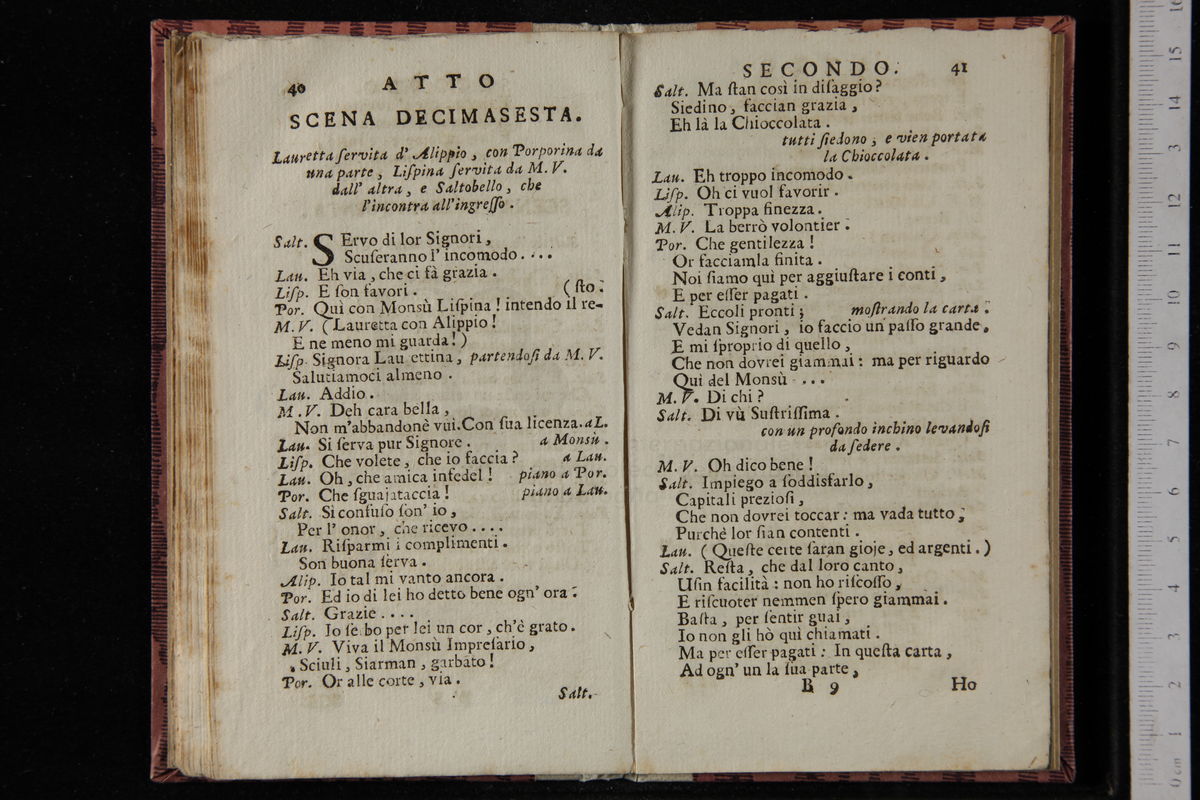 40 ATTO
SCENA DECIMASESTA.
Lauretta ſervita d' Alippio, con Porporina da
una parte, Liſpina ſervita da M. V.
dall' altra, e Saltobello, che
l'incontra all'ingreſſo.
Salt. SErvo di lor Signori,
Scuſeranno l' incomodo....
Lau. Eh via, che ci fà grazia.
Liſp. E ſon favori. (ſto.
Por. Quì con Monsù Liſpina! intendo il re-
M. V. (Lauretta con Alippio!
E ne meno mi guarda!)
Liſp. Signora Lau ettina, partendoſi da M. V.
Salutiamoci almeno.
Lau. Addio.
M. V. Deh cara bella,
Non m'abbandonè vui. Con ſua licenza. a L.
Lau. Si ſerva pur Signore. a Monsù.
Liſp. Che volete, che io faccia? a Lau.
Lau. Oh, che amica infedel! piano a Por.
Por. Che ſguajataccia! piano a Lau.
Salt. Sì confuſo ſon' io,
Per l' onor, che ricevo....
Lau. Riſparmi i complimenti.
Son buona ſerva.
Alip. Io tal mi vanto ancora.
Por. Ed io di lei ho detto bene ogn' ora.
Salt. Grazie....
Liſp. Io ſerbo per lei un cor, ch'è grato.
M. V. Viva il Monsù Impreſario,
Sciuli, Siarman, garbato!
Por. Or alle corte, via.
Salt.
SECONDO. 41
Salt. Ma ſtan così in diſaggio?
Siedino, faccian grazia,
Eh là la Chioccolata.
tutti ſiedono, e vien portata
la Chioccolata.
Lau. Eh troppo incomodo.
Liſp. Oh ci vuol favorir.
Alip. Troppa finezza.
M. V. La berrò volontier.
Por. Che gentilezza!
Or facciamla finita.
Noi ſiamo quì per aggiuſtare i conti,
E per eſſer pagati.
Salt. Eccoli pronti; moſtrando la carta.
Vedan Signori, io faccio un paſſo grande,
E mi ſproprio di quello,
Che non dovrei giammai: ma per riguardo
Quì del Monsù ....
M. V. Di chi?
Salt. Di vù Suſtriſſima.
con un profondo inchino levandoſi
da ſedere.
M. V. Oh dico bene!
Salt. Impiego a ſoddisfarlo,
Capitali prezioſi,
Che non dovrei toccar: ma vada tutto,
Purchè lor ſian contenti.
Lau. (Queſte certe ſaran gioje, ed argenti.)
Salt. Reſta, che dal loro canto,
Uſin facilità: non ho riſcoſſo,
E riſcuoter nemmen ſpero giammai.
Baſta, per ſentir guai,
Io non gli hò quì chiamati.
Ma per eſſer pagati: In queſta carta,
Ad ogn' un la ſua parte,
B 9 Ho